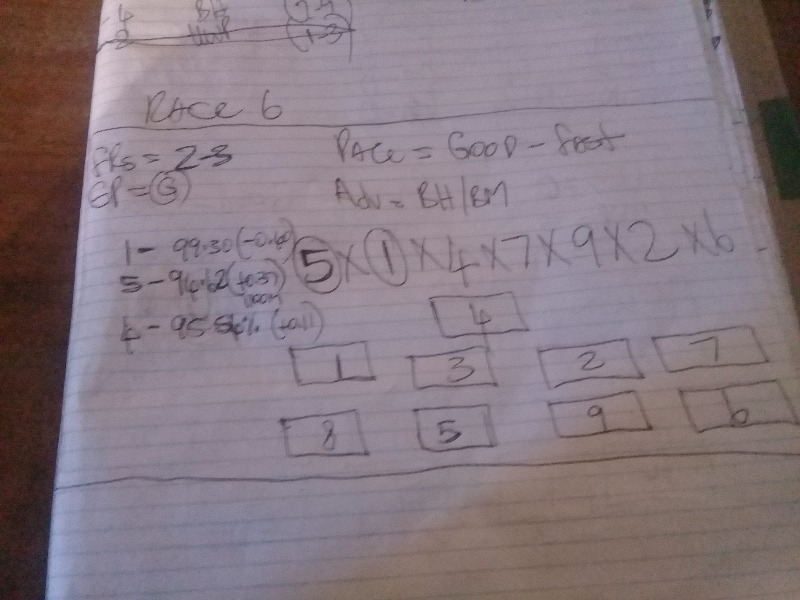 4 BH
RACE 6
FRs = 2-3 PACE = GOOD - fast
GP = 3 Adv = BH/BM
1 - 99.30 5 X 1 X 4 X 7 X 9 X 2 X 6
5 - 94.62 (+0.37)
4 - 95.54% (+0.11)
4
1 3 2 7
8 5 9 6